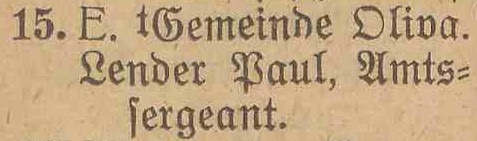 15. E. tGemeinde Oliva.
Lender Paul, Amts=
sergeant.